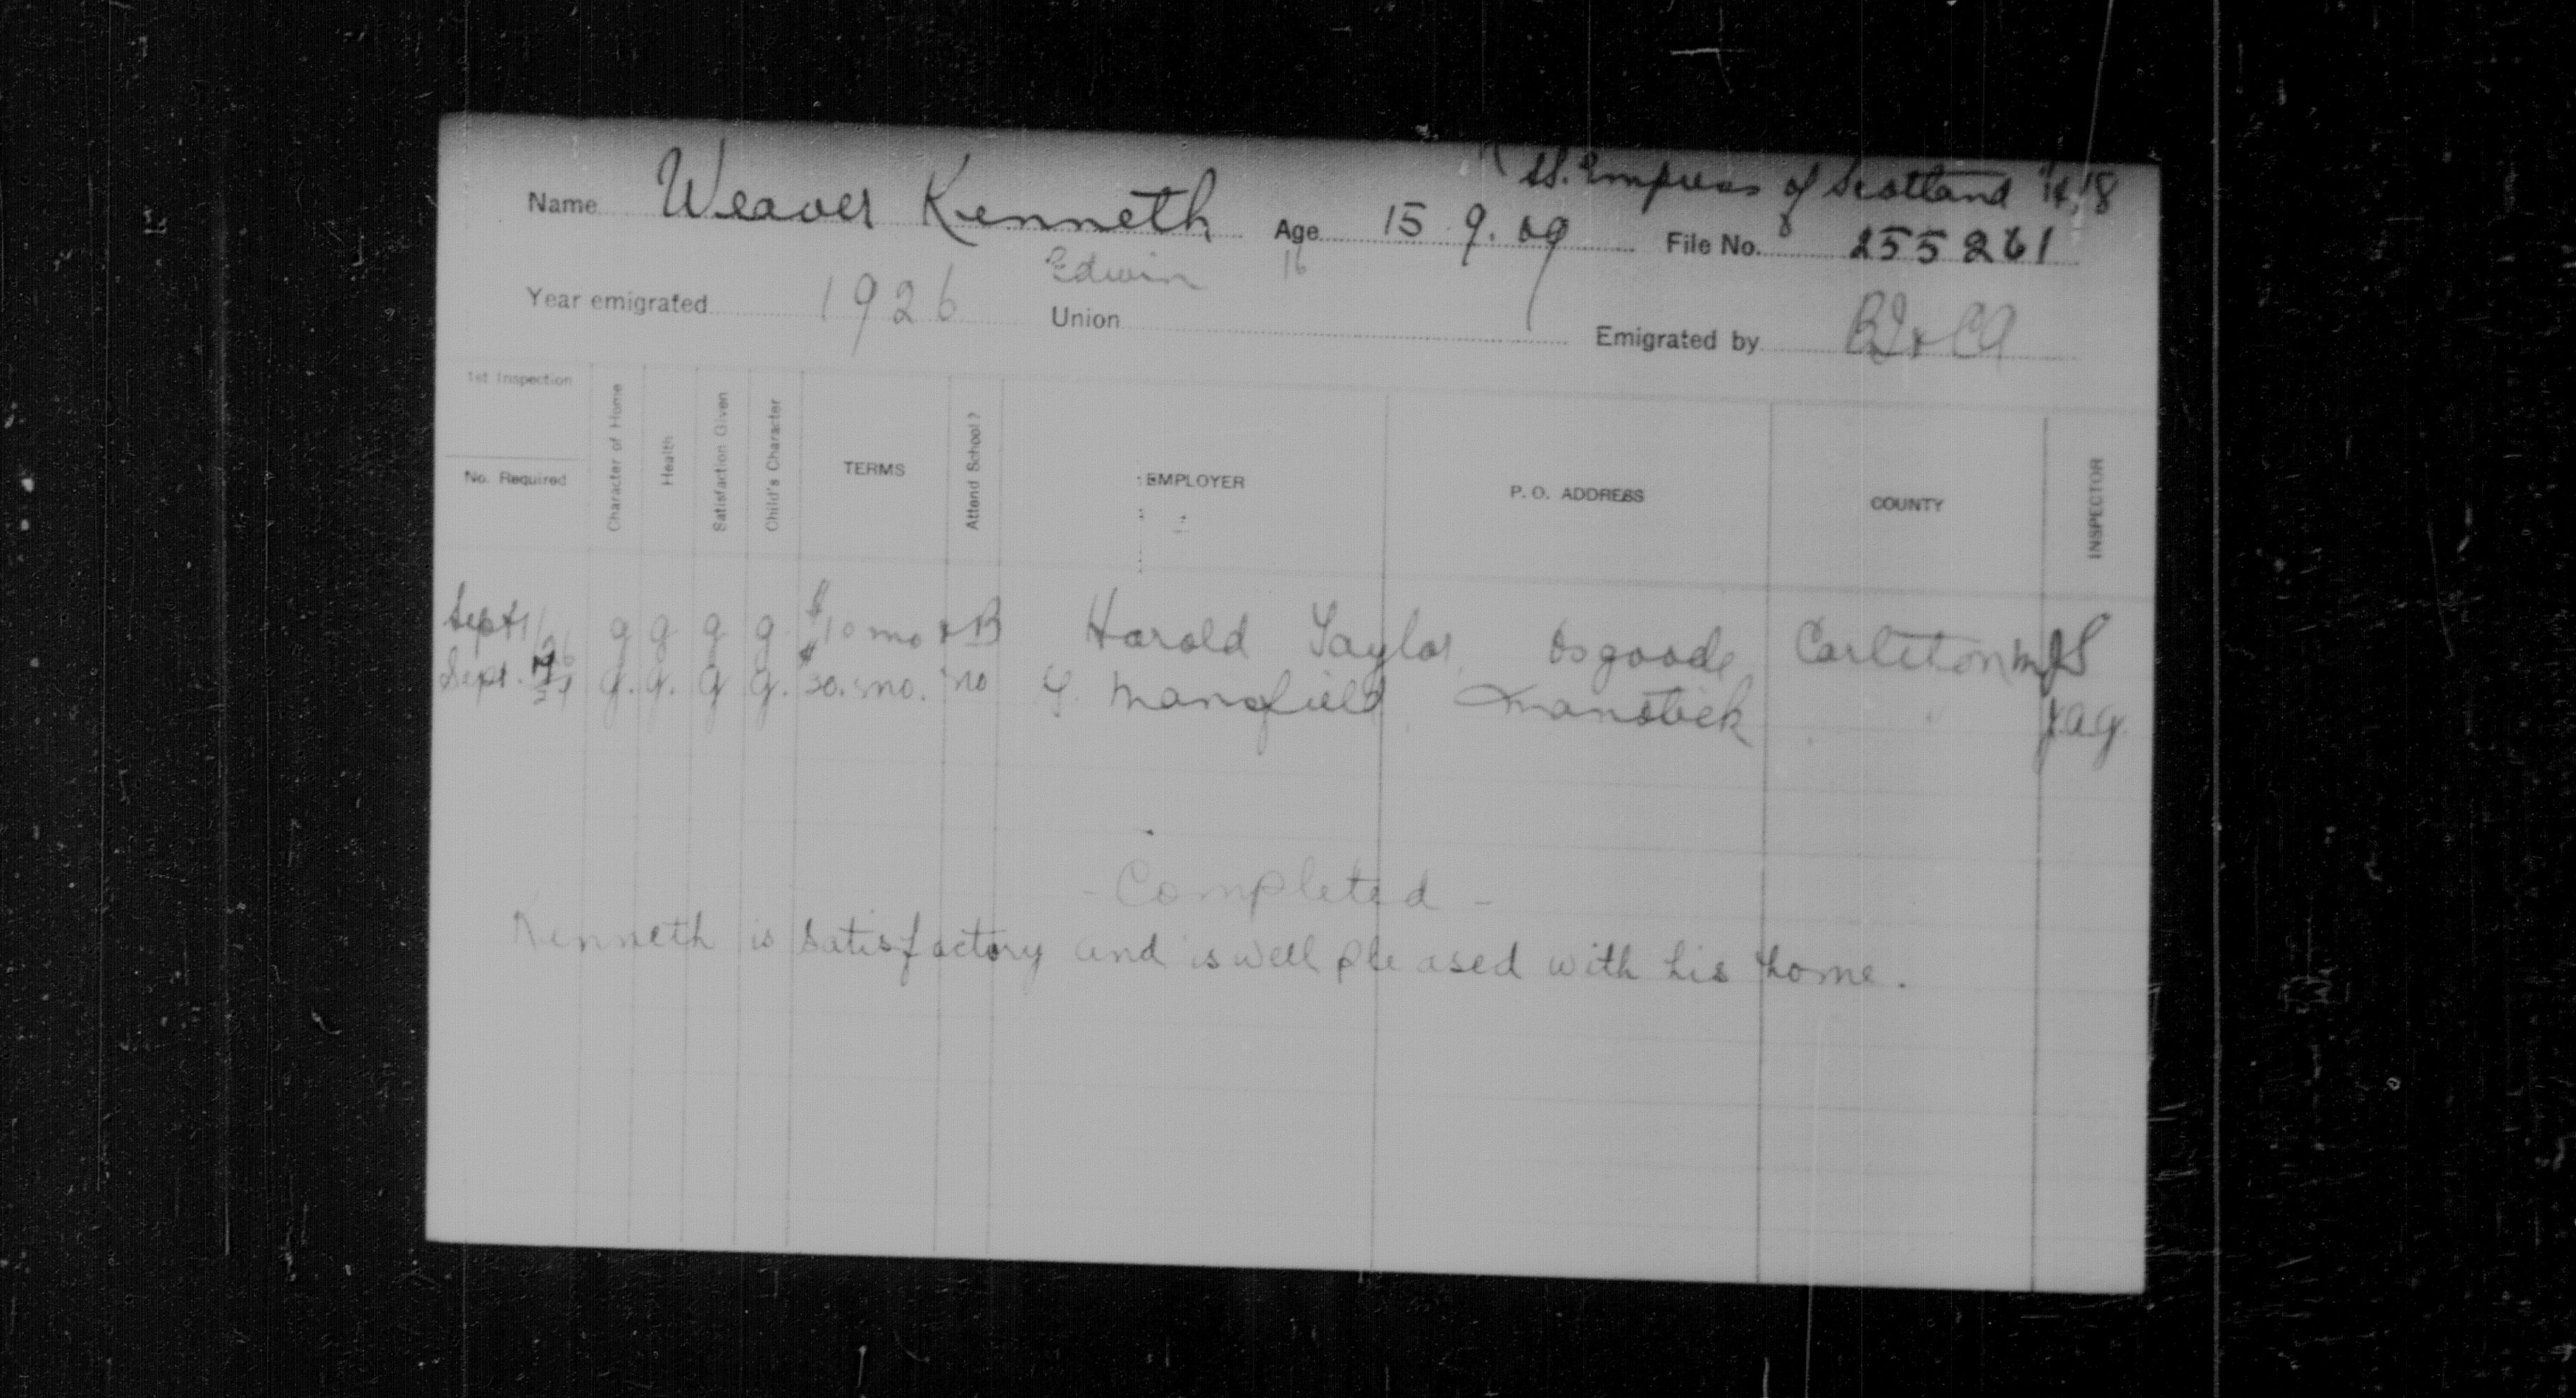 SS. Empress of Scotland
Name Weaver Kenneth Age 15 9. 09 File No. 255261
Edwin 16
Year emigrated 1926 Union Emigrated by
1st Inspection
No. Required
Character of Home
Health
Satisfaction Given
Child's Character
TERMS
Attend School?
EMPLOYER
P. O. ADDRESS
COUNTY
INSPECTOR
Sept 1/26 g g g g. $10 mo + B Harold Taylor Osgoode Carleton
Sept. g. g. g g. $30. mo. no Mansfield Manotick " JAG
- Completed -
Kenneth is satisfactory and is well pleased with his home.